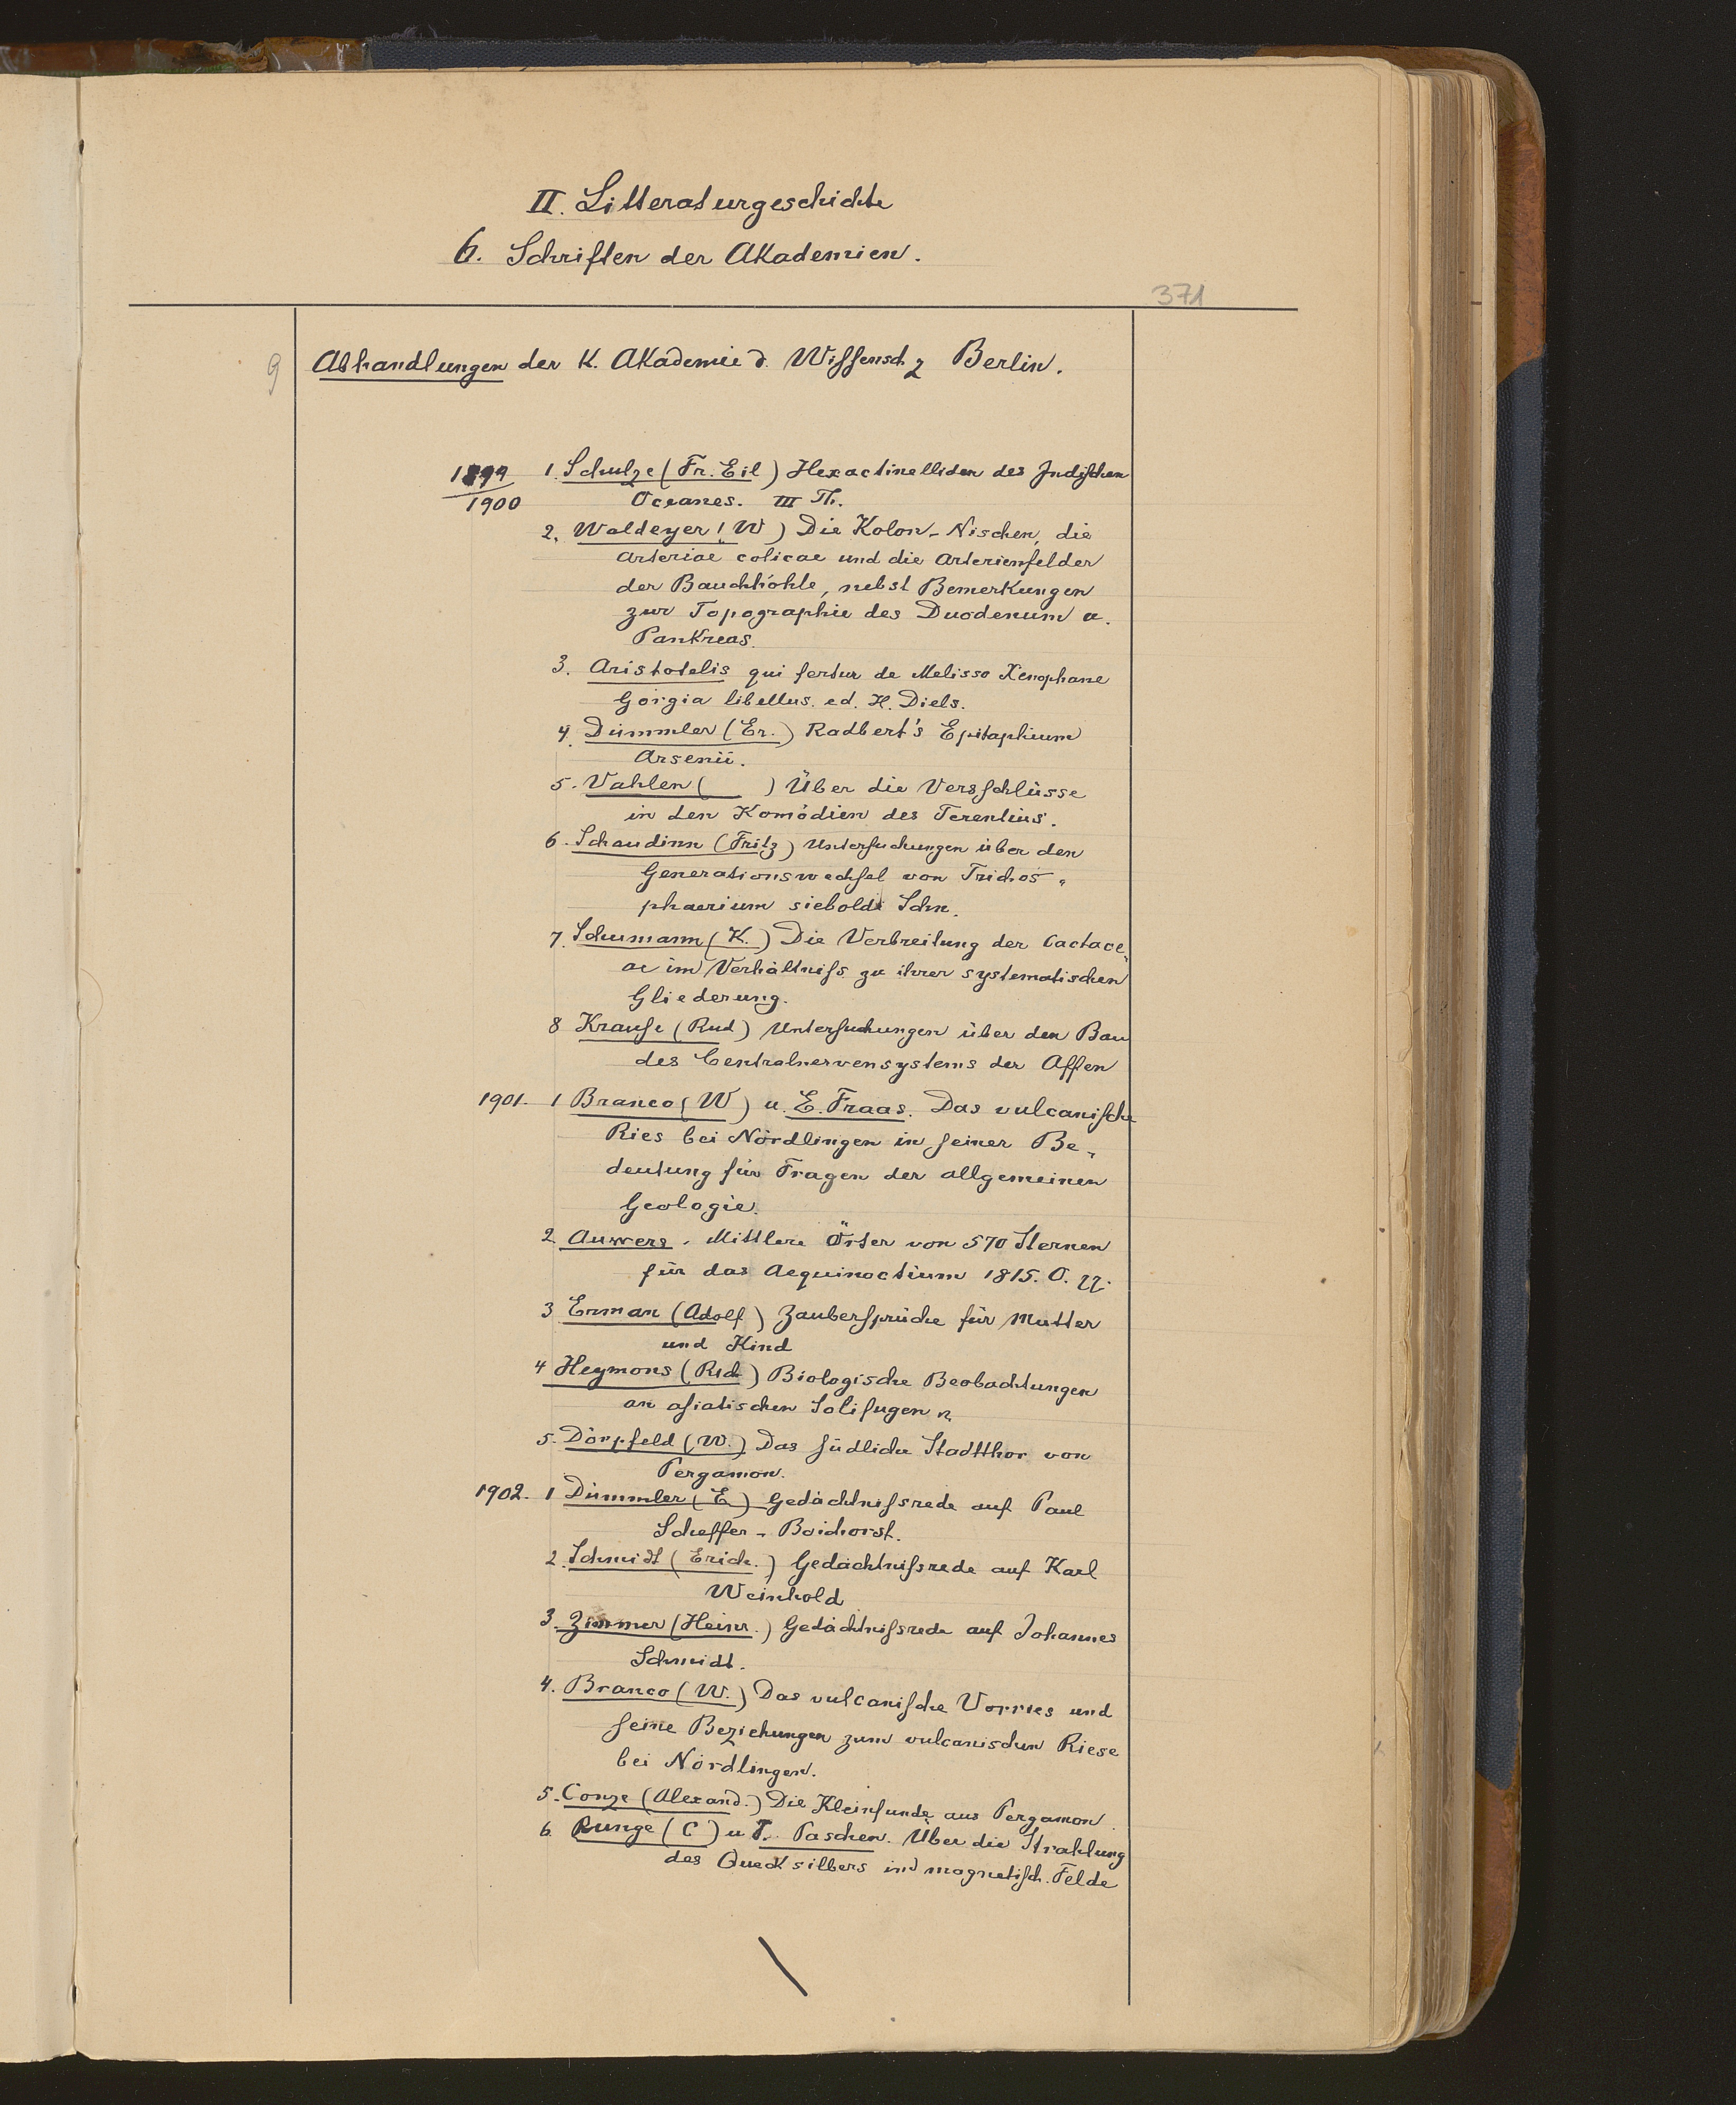 II. Litteraturgeschichte
6. Schriften der Akademien.
371
9 Abhandlungen der K. Akademie d. Wissensch z Berlin.
1899/1900 1. Schulze (Fr. Eil) Hexactinelliden des Indischen
Oceanes. III Th.
2. Waldeyer (W) Die Kolon-Nischen, die
arteriae colicae und die Arterienfelder
der Bauchhöhle, nebst Bemerkungen
zur Topographie des Duodenum u.
Pankreas.
3. Aristotelis qui fertur de Melisso Xenophane
Gorgia libellus. ed. H. Diels.
4. Dümmler (Er.) Radbert's Epitaphium
Arsenii.
5. Vahlen ( ) Über die Versschlüsse
in den Komödien des Terentius.
6. Schaudinn (Fritz) Untersuchungen über den
Generationswechsel von Trichos-
phaerium sieboldi Schn.
7. Schumann (K.) Die Verbreitung der Cactace-
ae im Verhältniss zu ihrer systematischen
Gliederung.
8 Krause (Rud) Untersuchungen über den Bau
des Centralnervensystems der Affen
1901. 1 Branco (W) u. E. Fraas. Das vulcanische
Ries bei Nördlingen in seiner Be-
deutung für Fragen der allgemeinen
Geologie.
2. Auwers. Mittlere Örter von 570 Sternen
für das Aequinoctium 1815. O.
3 Erman (Adolf) Zaubersprüche für Mutter
und Kind
4 Heymons (Rich) Biologische Beobachtungen
an asiatischen Solifugen
5. Dörpfeld (W.) Das südliche Stadtthor von
Pergamon.
1902. 1 Dümmler (E) Gedächtnissrede auf Paul
Scheffer-Boichorst.
2. Schmidt (Erich.) Gedächtnissrede auf Karl
Weinhold
3. Zimmer (Heinr.) Gedächtnissrede auf Johannes
Schmidt.
4. Branco (W.) Das vulcanische Vorries und
seine Beziehungen zum vulcanischen Riese
bei Nördlingen.
5. Conze (Alexand.) Die Kleinfunde aus Pergamon.
6. Runge (C) u F. Paschen. Über die Strahlung
des Quecksilbers im magnetisch. Felde